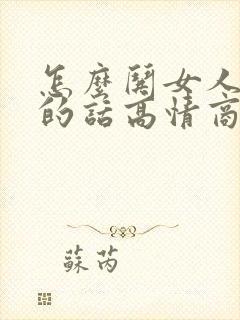 怎麼關女人
的話高情商
蘇芮